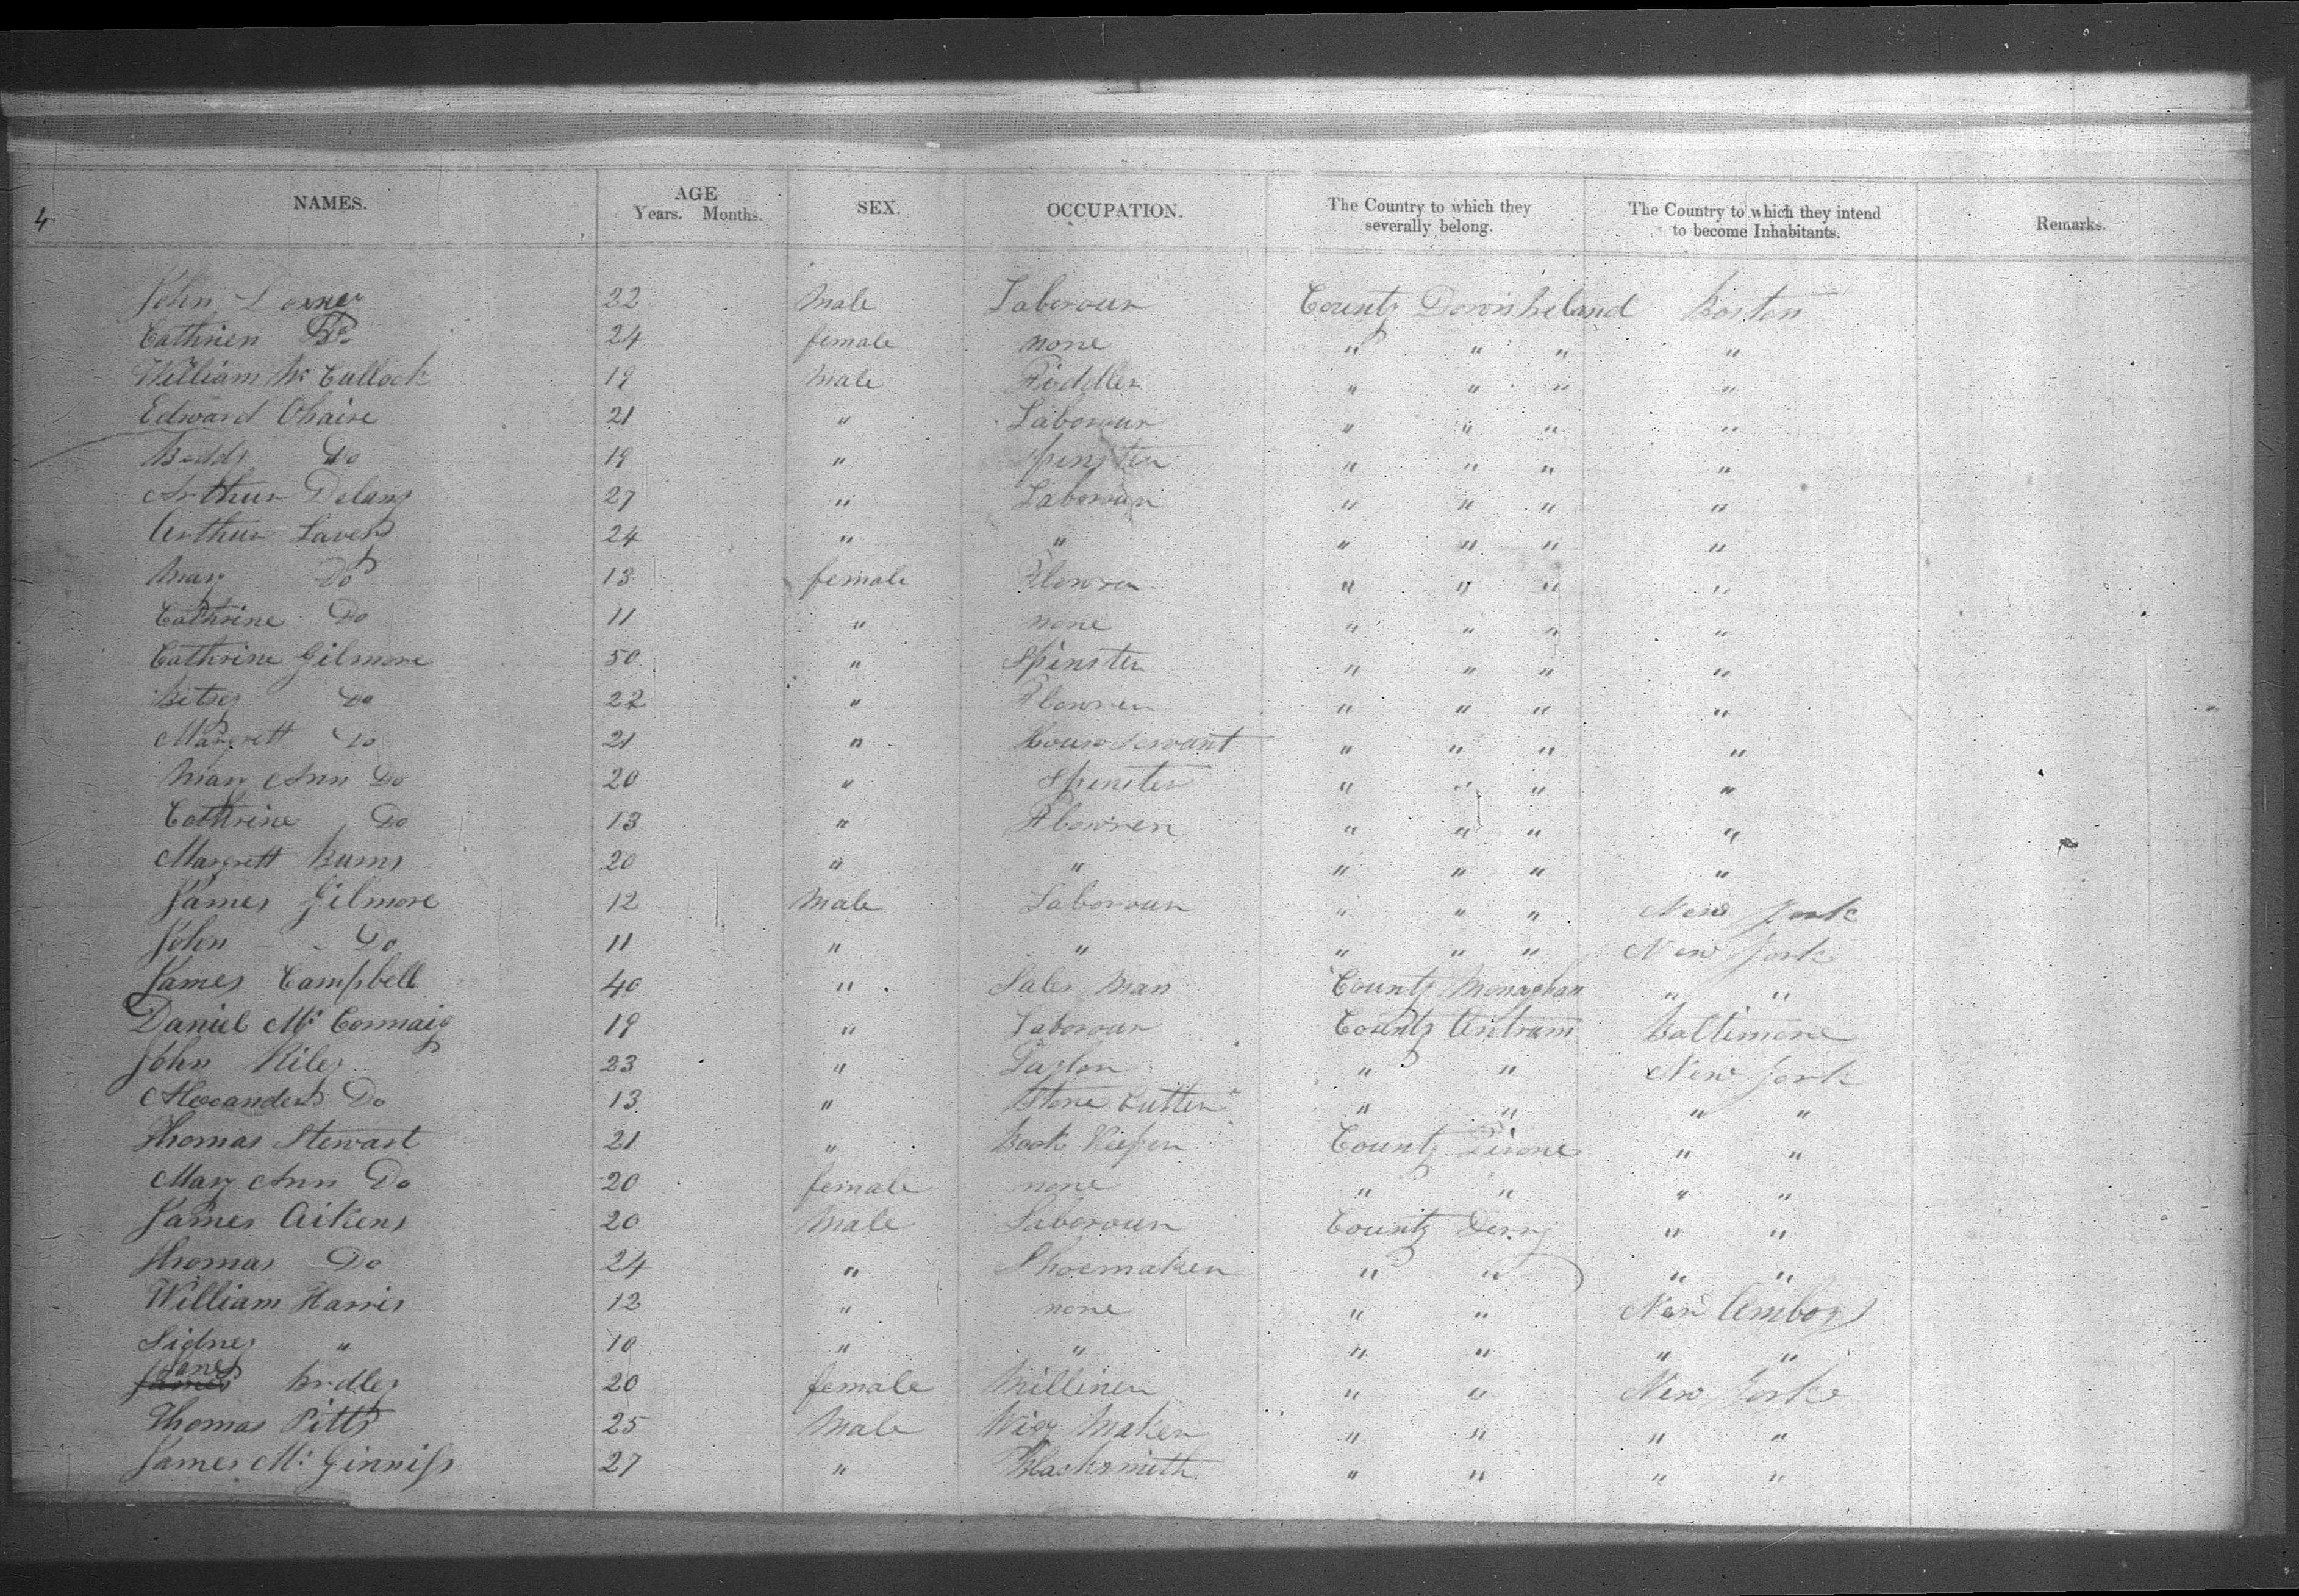 4
NAMES. AGE Years. Months. SEX. OCCUPATION. The Country to which they severally belong. The Country to which they intend to become Inhabitants. Remarks.
John 22 Male Laborour County Down Ireland Boston
Cathrien Do 24 female none " " " "
William Mc Cullock 19 Male " " " "
Edward Ohaire 21 " Laborour " " " "
Do 19 " Spinster " " " "
Arthur Delany 27 " Laborour " " " "
Arthur Lavery 24 " " " " " "
Mary Do 13 female Flowrer " " " "
Cathrine Do 11 " none " " " "
Cathrine Gilmore 50 " Spinster " " " "
Bitsey Do 22 " Flowrer " " " "
Margrett Do 21 " House Servant " " " "
Mary Ann Do 20 " Spinster " " " "
Cathrine Do 13 " Flowrer " " " "
Margrett Burns 20 " " " " " "
James Gilmore 12 Male Laborour " " " New York
John Do 11 " " " " " New York
James Campbell 40 " Sales Man County Monaghan " "
Daniel Mc Cormaig 19 " Laborour County Antrum Baltimore
John Riley 23 " Taylor " " New York
Alexander Do 13 " Stone Cutter " " " "
Thomas Stewart 21 " Book Keeper County Tirone " "
Mary Ann Do 20 female none " " " "
James Aikens 20 Male Laborour County Derry " "
Thomas Do 24 " Shoemaker " " " "
William Harris 12 " none " " New Amboy
Sidney " 10 " " " " " "
Jane Bradley 20 female Milliner " " New York
Thomas Pitts 25 Male Wigg Maker " " " "
James Mc Ginniss 27 " Blacksmith " " " "